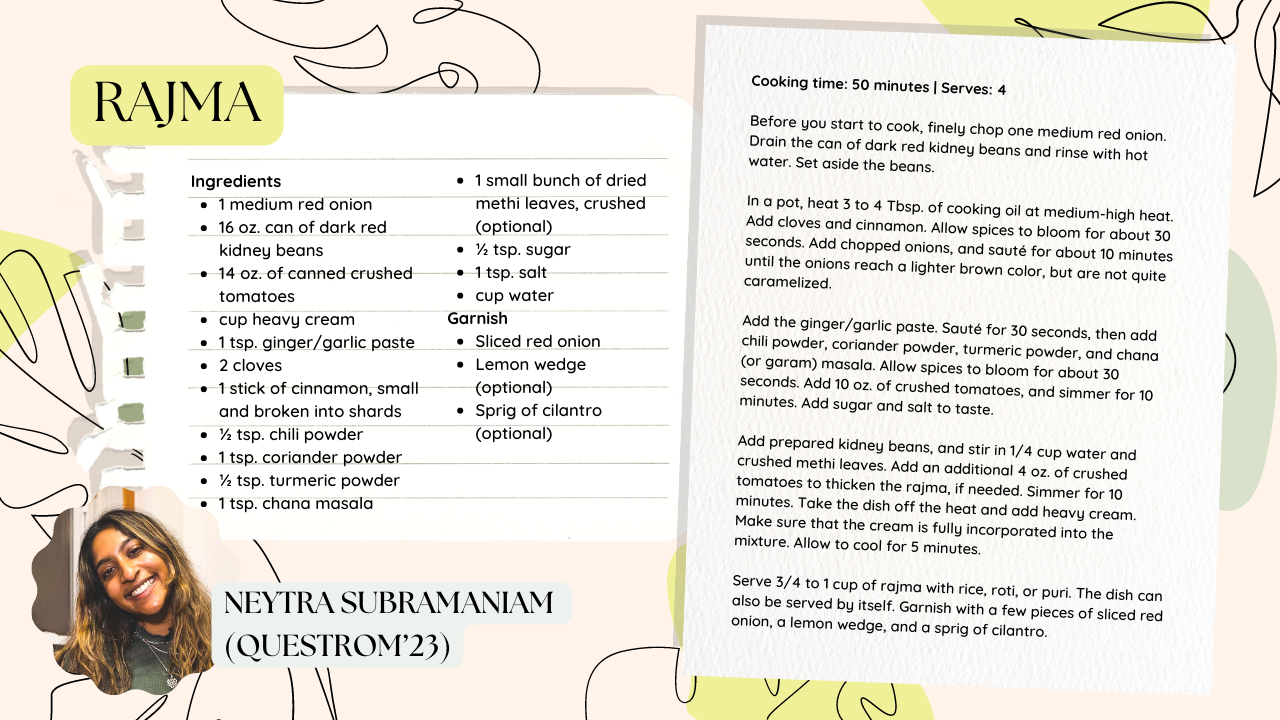 RAJMA
Ingredients
• 1 medium red onion
• 16 oz. can of dark red
kidney beans
• 14 oz. of canned crushed
tomatoes
• cup heavy cream
• 1 tsp. ginger/garlic paste
• 2 cloves
• 1 stick of cinnamon, small
and broken into shards
• ½ tsp. chili powder
• 1 tsp. coriander powder
• ½ tsp. turmeric powder
• 1 tsp. chana masala
• 1 small bunch of dried
methi leaves, crushed
(optional)
• ½ tsp. sugar
• 1 tsp. salt
• cup water
Garnish
• Sliced red onion
• Lemon wedge
(optional)
• Sprig of cilantro
(optional)
NEYTRA SUBRAMANIAM
(QUESTROM'23)
Cooking time: 50 minutes | Serves: 4
Before you start to cook, finely chop one medium red onion.
Drain the can of dark red kidney beans and rinse with hot
water. Set aside the beans.
In a pot, heat 3 to 4 Tbsp. of cooking oil at medium-high heat.
Add cloves and cinnamon. Allow spices to bloom for about 30
seconds. Add chopped onions, and sauté for about 10 minutes
until the onions reach a lighter brown color, but are not quite
caramelized.
Add the ginger/garlic paste. Sauté for 30 seconds, then add
chili powder, coriander powder, turmeric powder, and chana
(or garam) masala. Allow spices to bloom for about 30
seconds. Add 10 oz. of crushed tomatoes, and simmer for 10
minutes. Add sugar and salt to taste.
Add prepared kidney beans, and stir in 1/4 cup water and
crushed methi leaves. Add an additional 4 oz. of crushed
tomatoes to thicken the rajma, if needed. Simmer for 10
minutes. Take the dish off the heat and add heavy cream.
Make sure that the cream is fully incorporated into the
mixture. Allow to cool for 5 minutes.
Serve 3/4 to 1 cup of rajma with rice, roti, or puri. The dish can
also be served by itself. Garnish with a few pieces of sliced red
onion, a lemon wedge, and a sprig of cilantro.